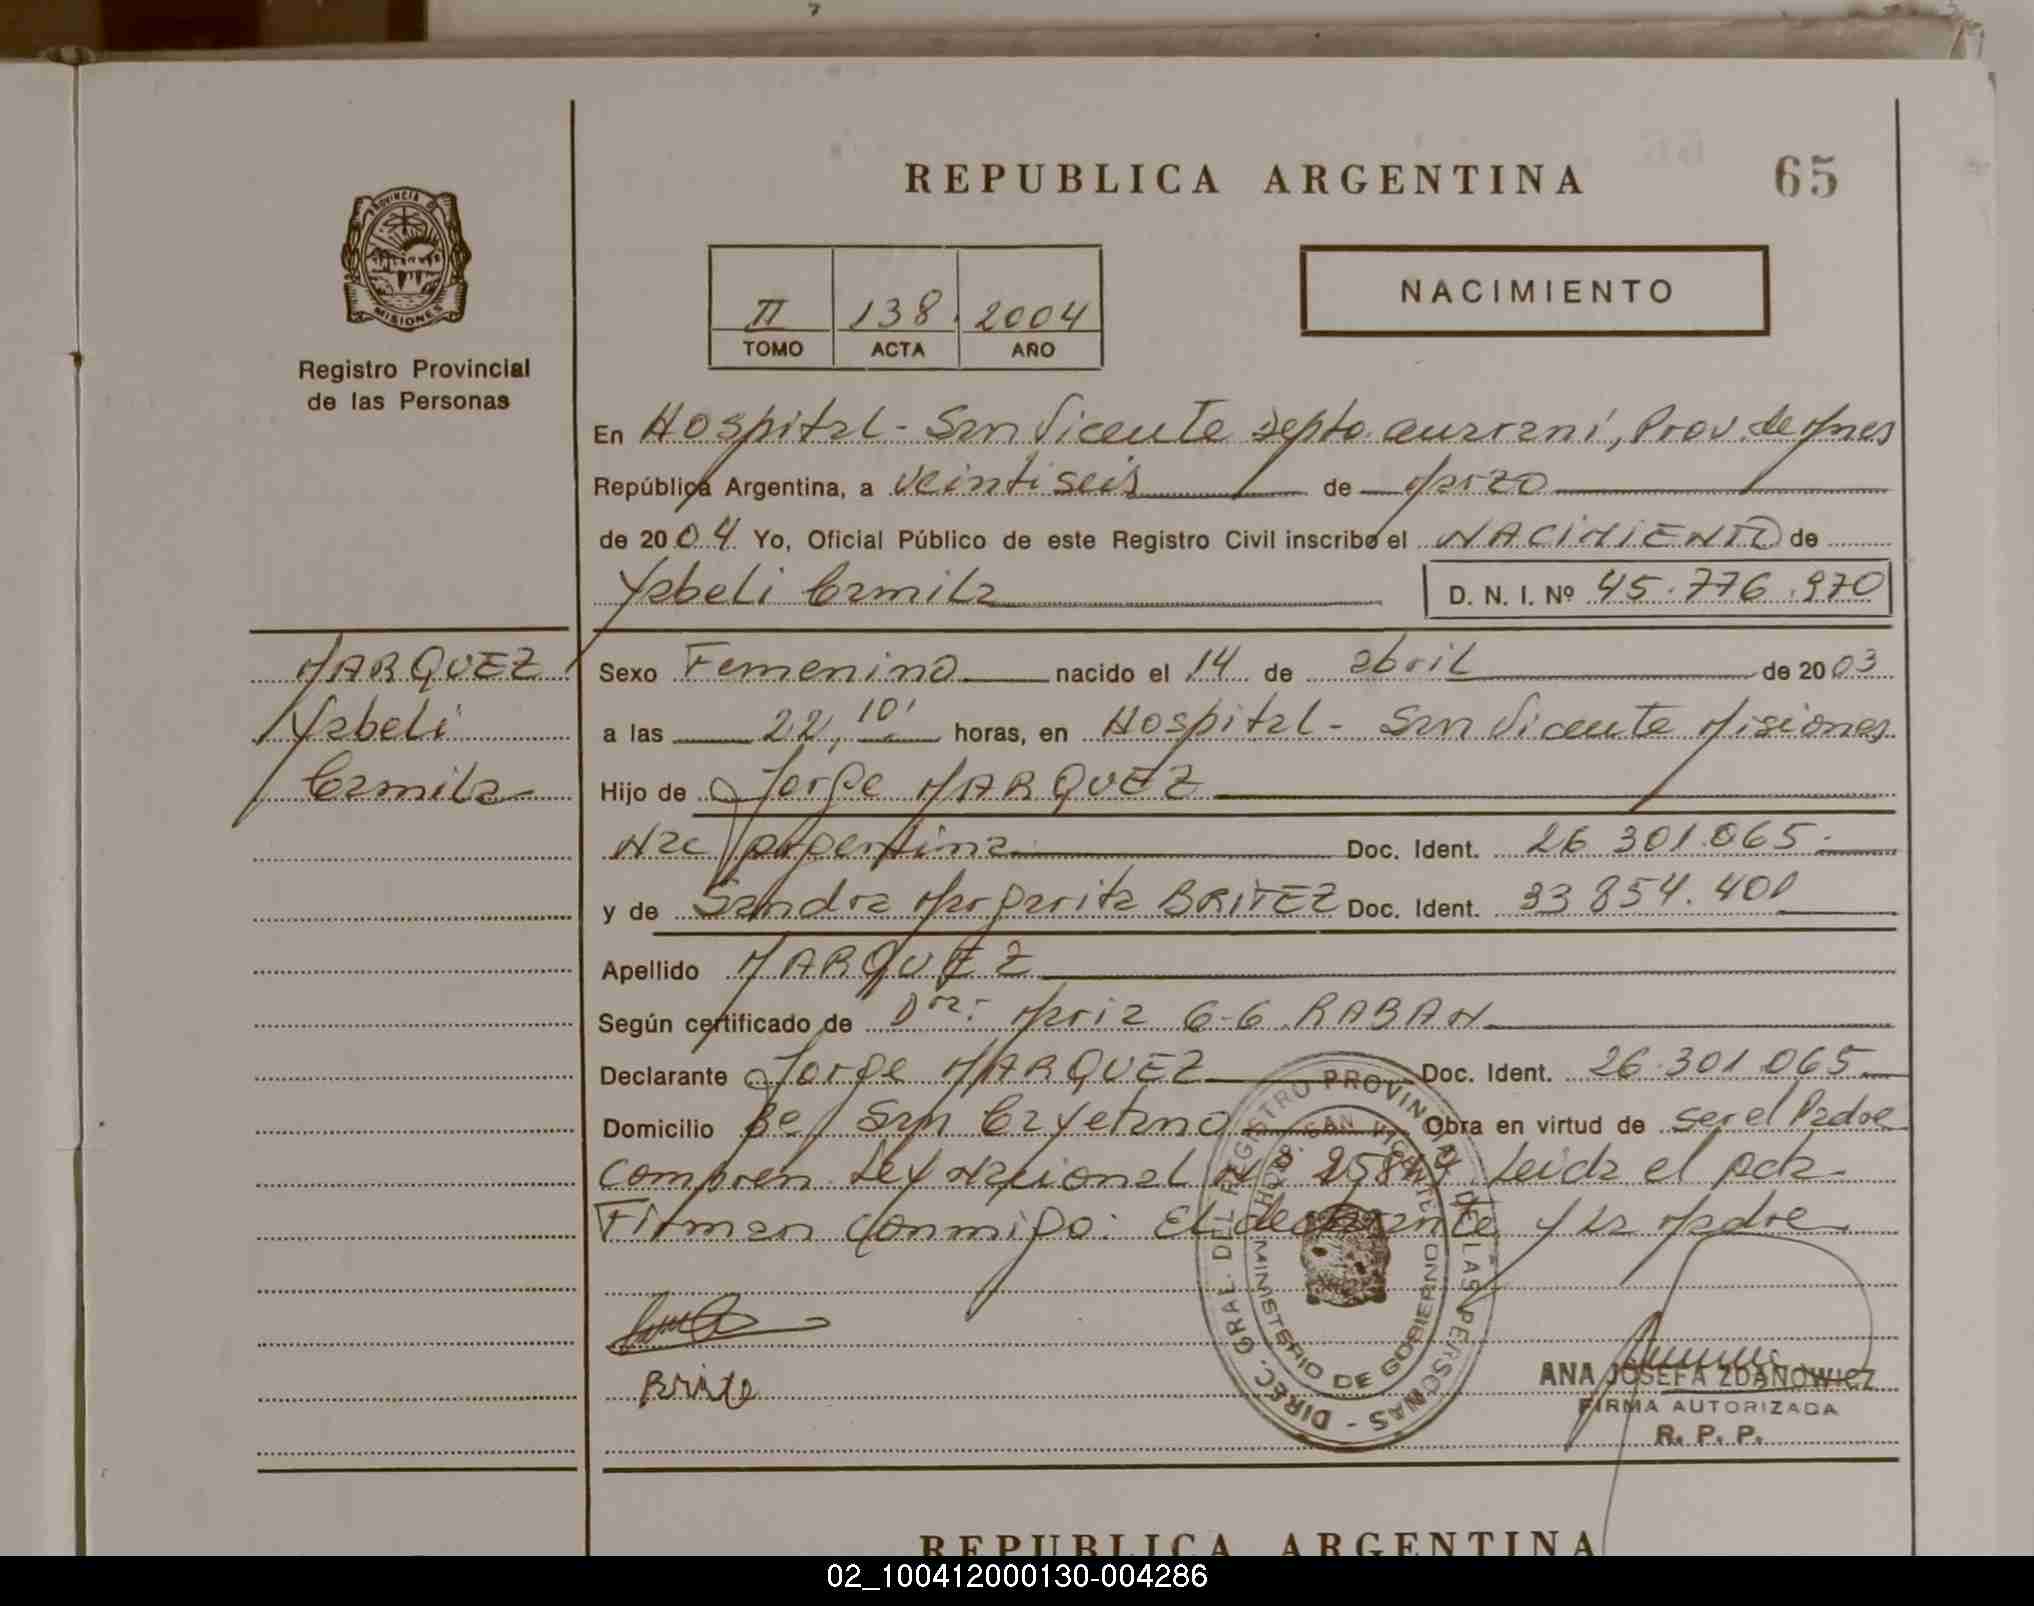 REPUBLICA ARGENTINA
65
PROVINCIA DE
MISIONES
Registro Provincial
de las Personas
II 138 2004
TOMO ACTA AÑO
NACIMIENTO
En Hospital - San Vicente Depto. Guarani, Prov. de Mnes
República Argentina, a veintiseis de Marzo
de 2004 Yo, Oficial Público de este Registro Civil inscribo el NACIMIENTO de
Yabeli Camila D. N. I. Nº 45.776.970
MARQUEZ
Yabeli
Camila
Sexo Femenino nacido el 14 de abril de 2003
a las 22,10' horas, en Hospital - San Vicente Misiones
Hijo de Jorge MARQUEZ
Nac Argentina Doc. Ident. 26 301.065.-
y de Sandra Margarita BRITEZ Doc. Ident. 33 854.401
Apellido MARQUEZ
Según certificado de Dra. Maria G-G. RABAN
Declarante Jorge MARQUEZ Doc. Ident. 26.301.065
Domicilio Be/ San Cayetano Obra en virtud de ser el Padre
Compren. Ley Nacional Nº Leida el Acta
Firman Conmigo: El declarante y la Madre
Brite
DIREC. GRAL. DEL REGISTRO PROVINCIAL DE LAS PERSONAS -
HOSP. SAN VICENTE
MINISTERIO DE GOBIERNO
ANA JOSEFA ZDANOWICZ
FIRMA AUTORIZADA
R. P. P.
REPUBLICA ARGENTINA
02_100412000130-004286